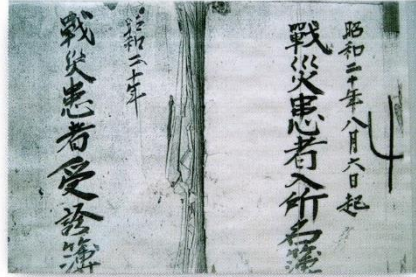 昭和二十年八月六日起
戰災患者入所名簿
昭和二十年
戰災患者受診簿